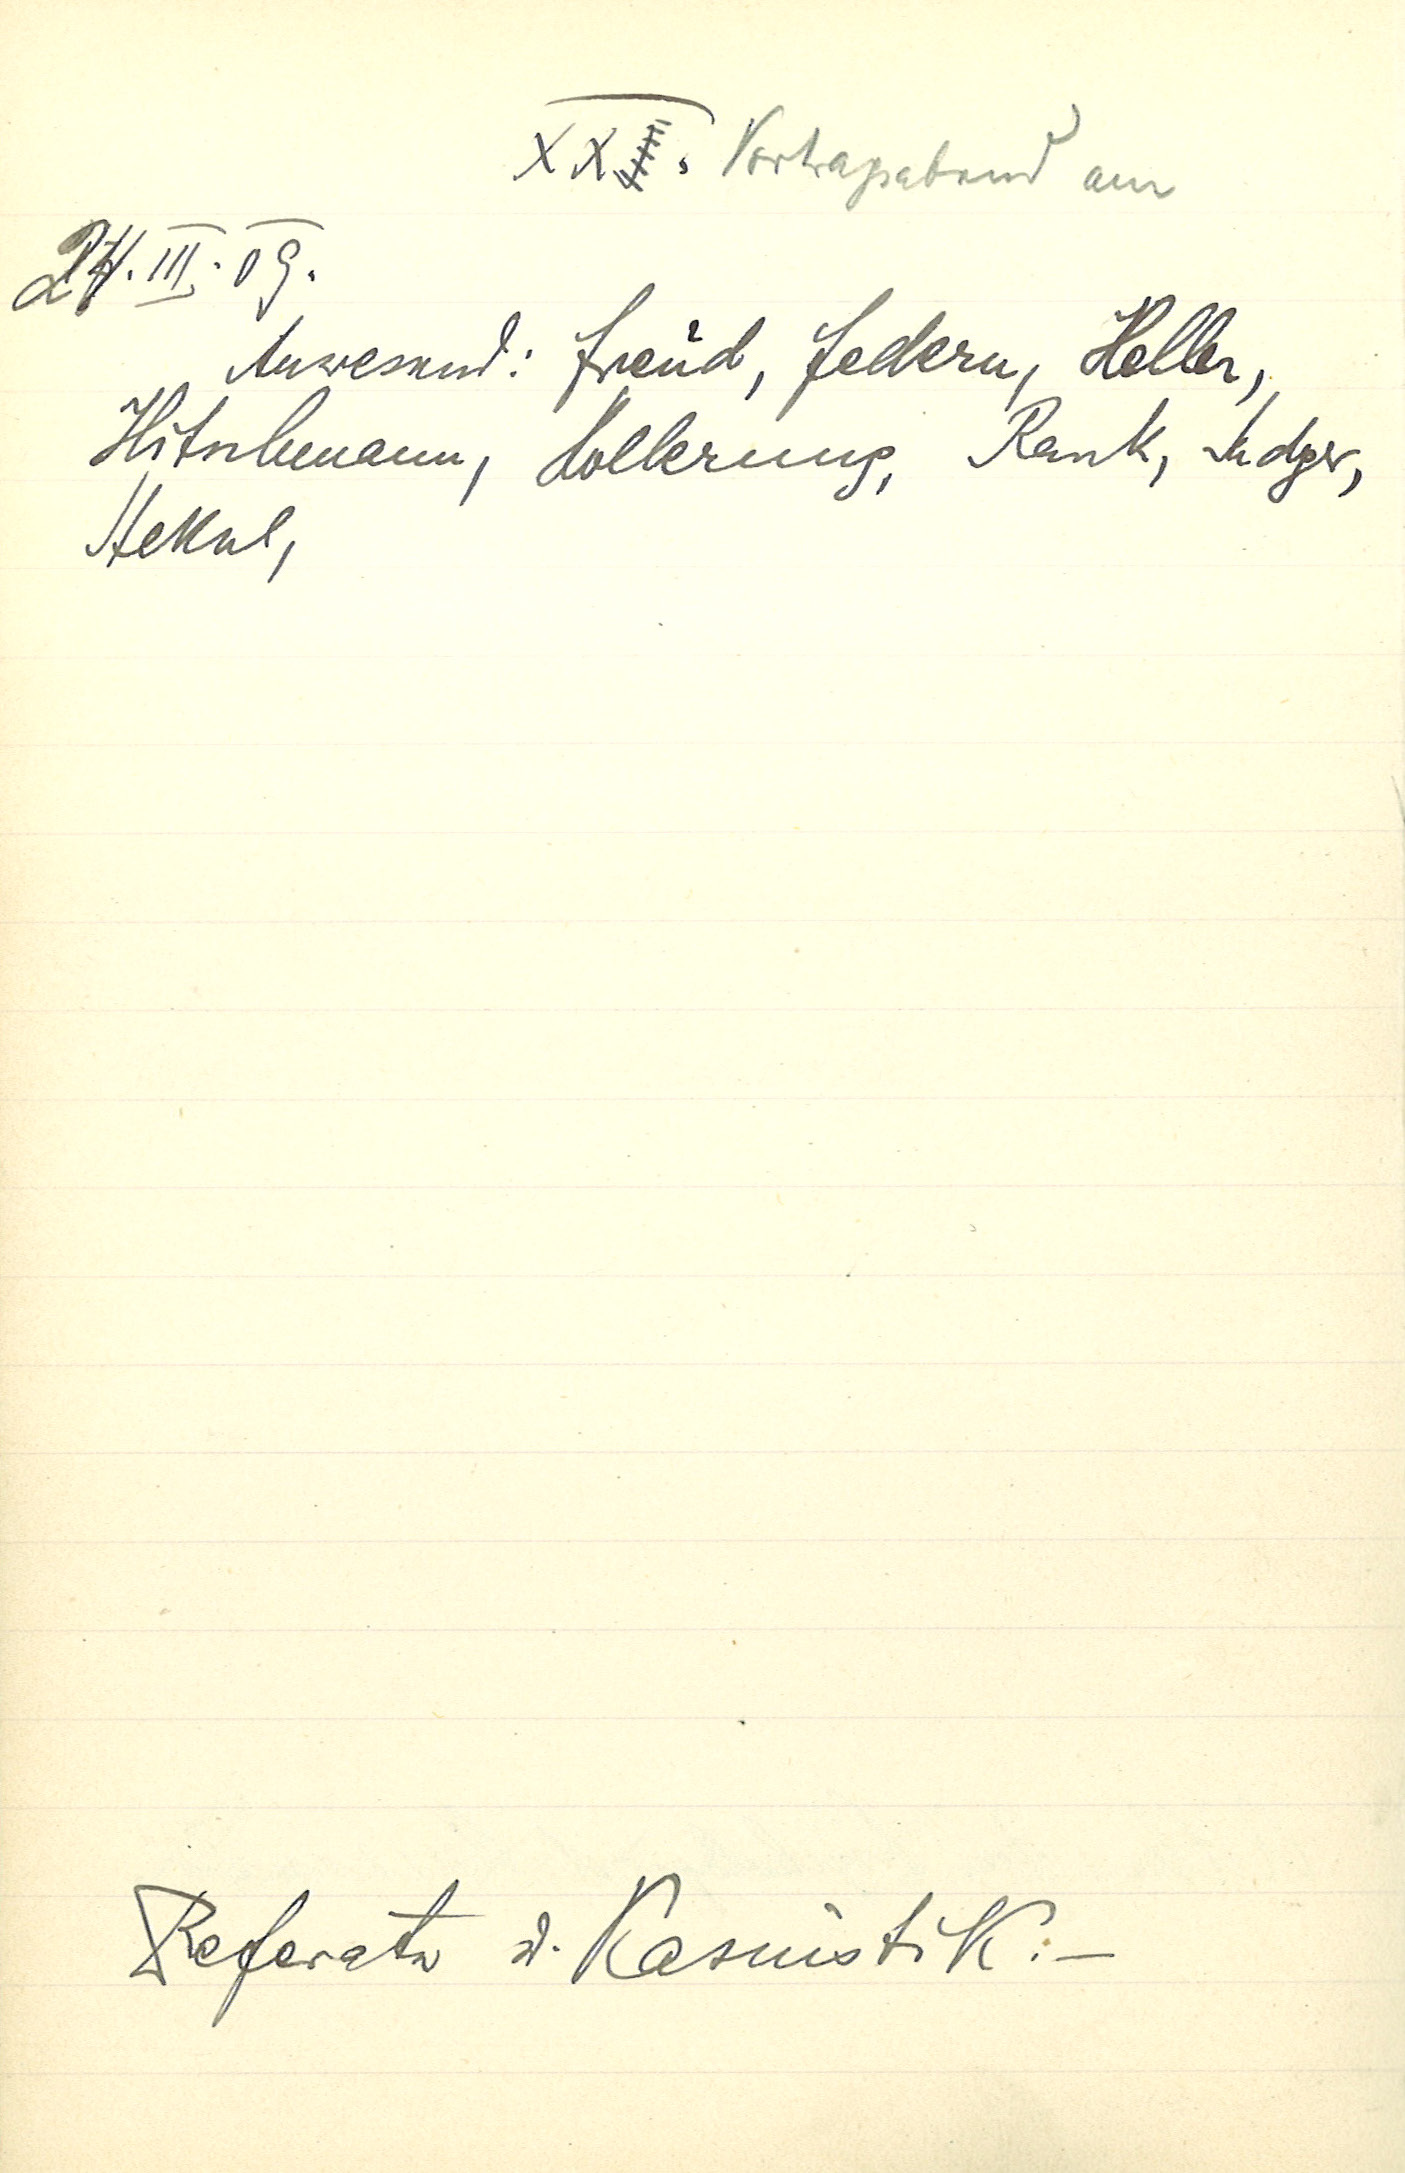 XX. Vortragsabend am
24. III. 09.
Anwesend: Freud, Federn, Heller,
Hitschmann, Hollerung, Rank, Sadger,
Stekel,
Referate u. Kasuistik.–